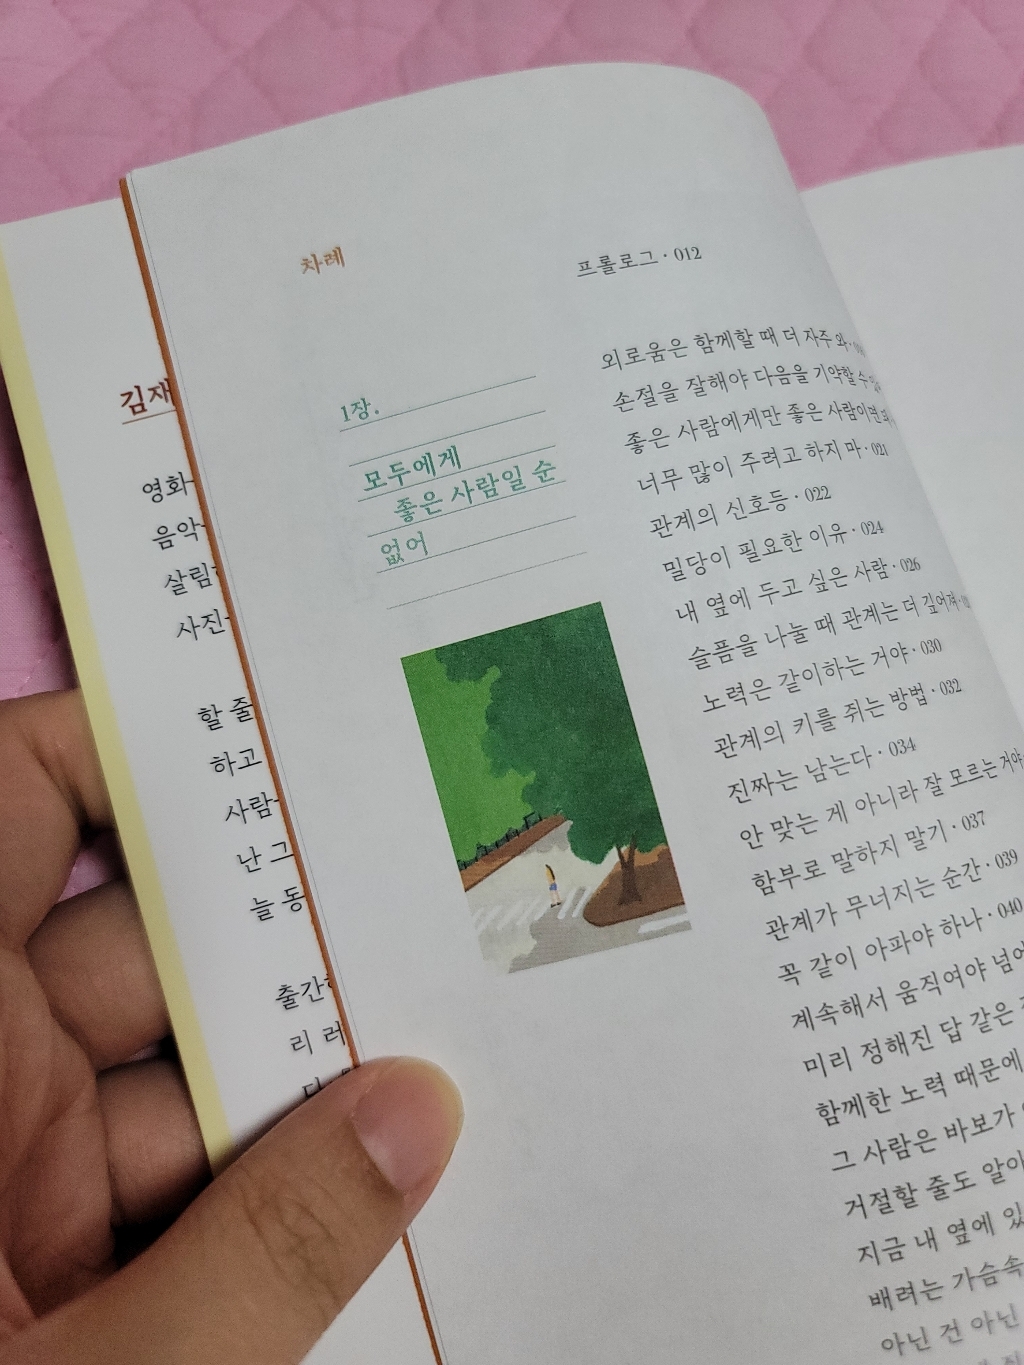 김재
영화
음악
살림
사진
할 줄
하고
사람
난 그
늘 동
출간
리 러
차례
1장.
모두에게
좋은 사람일 순
없어
프롤로그 · 012
외로움은 함께할 때 더 자주 와
손절을 잘해야 다음을 기약할 수
좋은 사람에게만 좋은 사람이면
너무 많이 주려고 하지 마 · 021
관계의 신호등 · 022
밀당이 필요한 이유 · 024
내 옆에 두고 싶은 사람 · 026
슬픔을 나눌 때 관계는 더 깊어져
노력은 같이하는 거야 · 030
관계의 키를 쥐는 방법 · 032
진짜는 남는다 · 034
안 맞는 게 아니라 잘 모르는 거야
함부로 말하지 말기 · 037
관계가 무너지는 순간 · 039
꼭 같이 아파야 하나 · 040
계속해서 움직여야 넘어
미리 정해진 답 같은
함께한 노력 때문에
그 사람은 바보가
거절할 줄도 알아
지금 내 옆에 있
배려는 가슴속
아닌 건 아닌